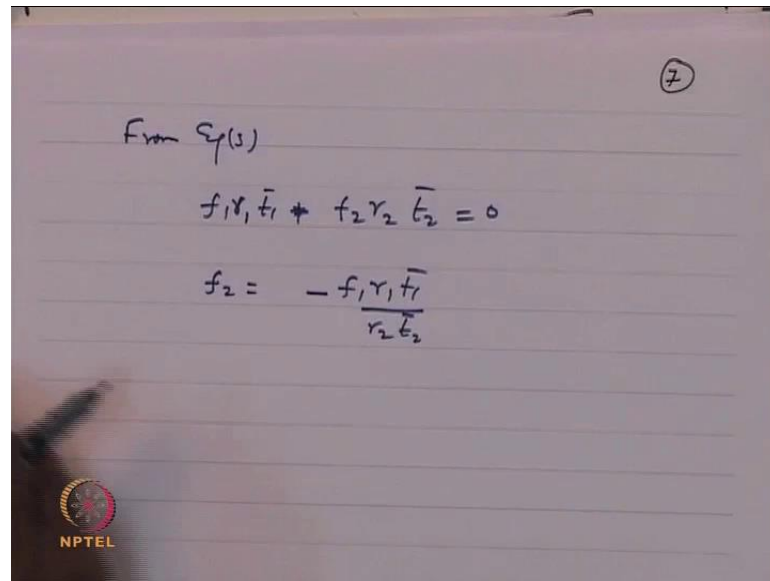 7
From Eq(3)
f₁r₁t̄₁ + f₂r₂ t̄₂ = 0
f₂ = - f₁r₁t̄₁
r₂t̄₂
NPTEL